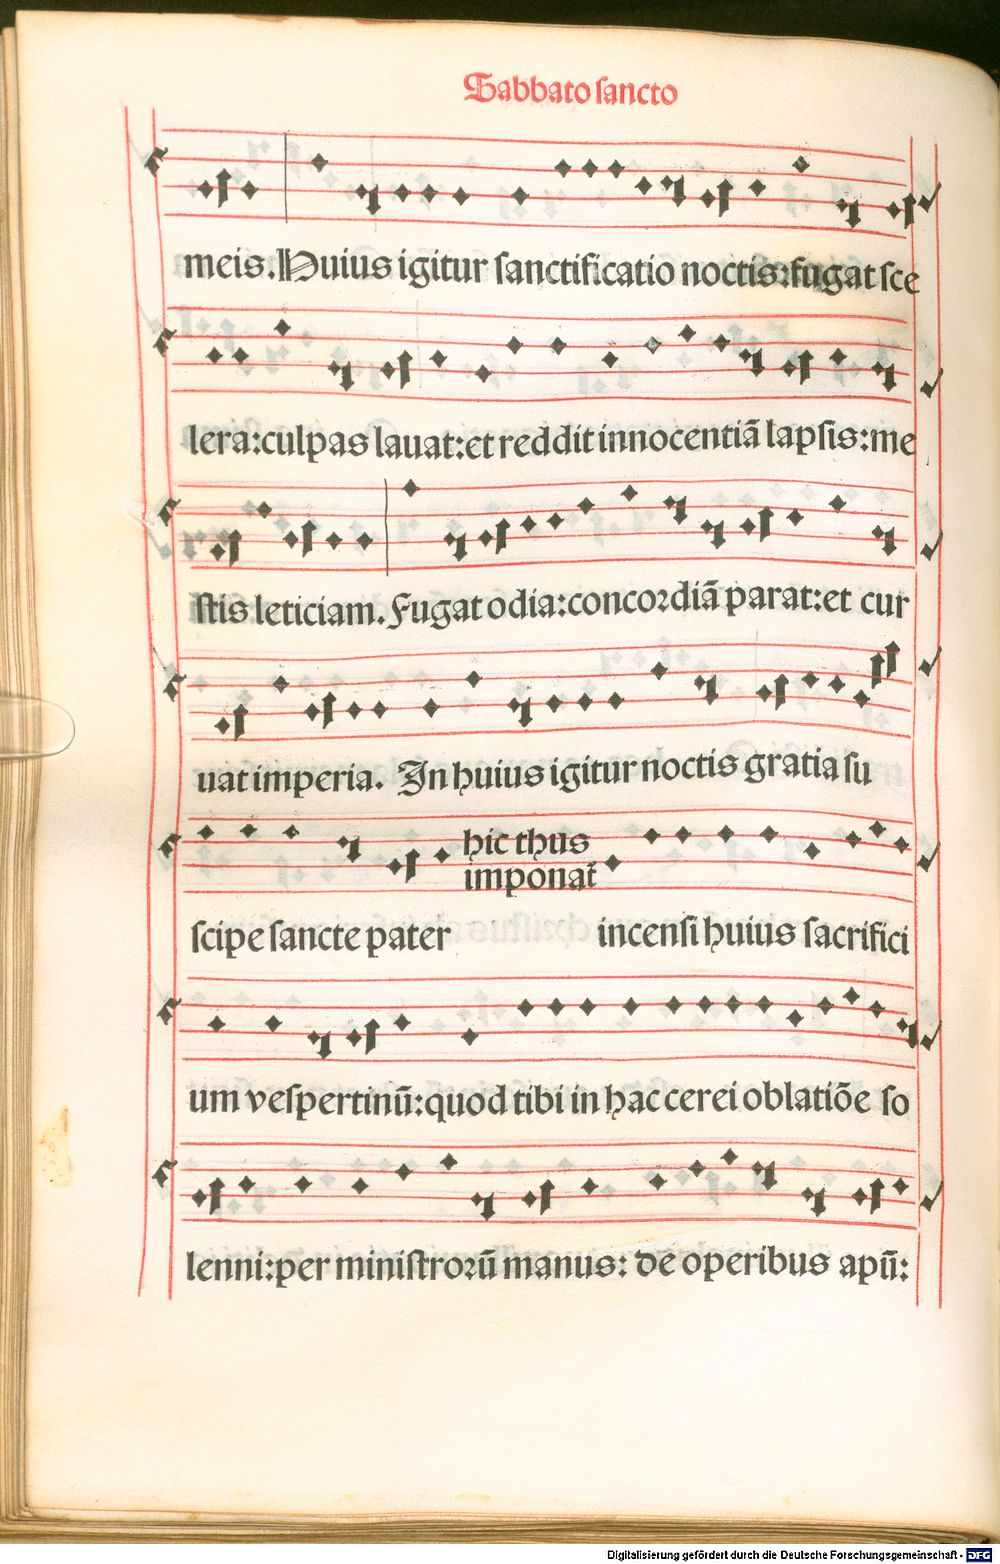 Sabbato ſancto
meis. Huius igitur ſanctificatio noctis: fugat ſce
lera: culpas lauat: et reddit innocentiã lapſis: me
ſtis leticiam. Fugat odia: concoꝛdiã parat: et cur
uat imperia. In huius igitur noctis gratia ſu
hic thus
imponat̃
ſcipe ſancte pater incenſi huius ſacrifici
um veſpertinũ: quod tibi in hac cerei oblatiõe ſo
lenni: per miniſtroꝛũ manus: de operibus apũ:
Digitalisierung gefördert durch die Deutsche Forschungsgemeinschaft - DFG